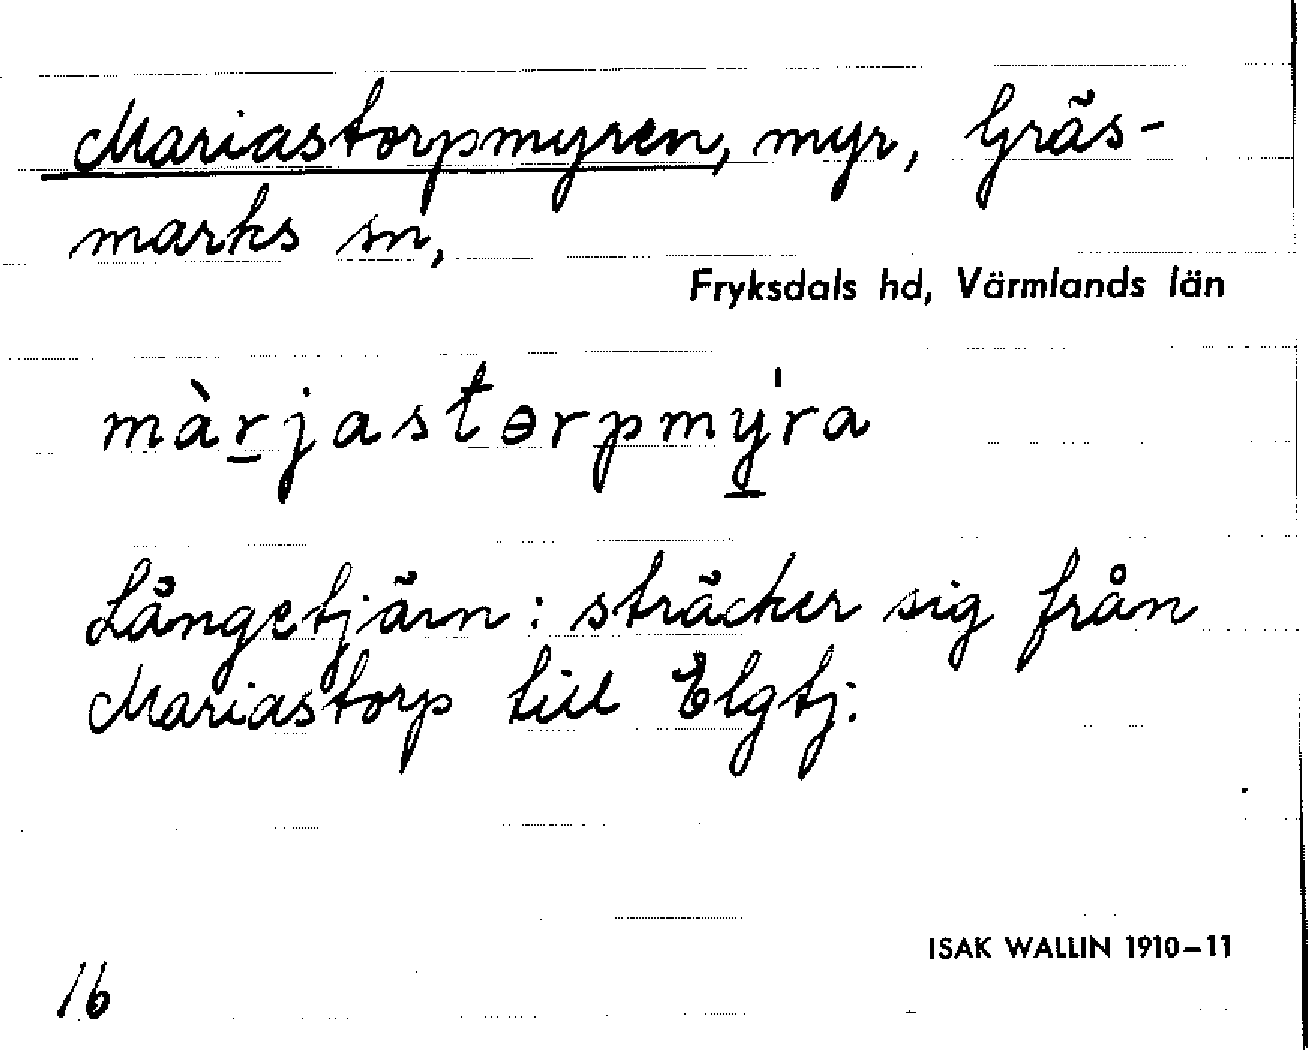 Mariastorpmyren, myr, Gräs-
marks sn,
Fryksdals hd, Värmlands län
màr̲jastɘrpmý̲ra
Långetjärn: sträcker sig från
Mariastorp till Elgtj.
ISAK WALLIN 1910–11
16